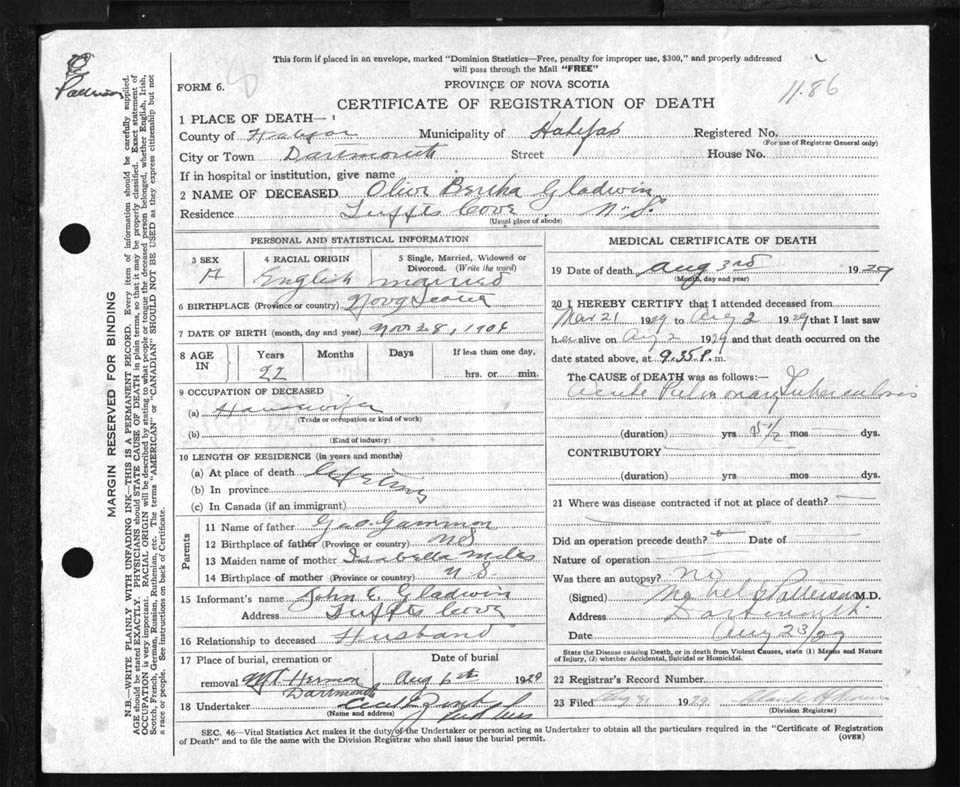 This form if placed in an envelope, marked "Dominion Statistics—Free, penalty for improper use, $300," and properly addressed
will pass through the Mail "FREE"
FORM 6. 8
PROVINCE OF NOVA SCOTIA
1186
CERTIFICATE OF REGISTRATION OF DEATH
1 PLACE OF DEATH—
County of Halifax Municipality of Halifax Registered No.
(For use of Registrar General only)
City or Town Dartmouth Street House No.
If in hospital or institution, give name
2 NAME OF DECEASED Olive Bertha Gladwin
Residence Tuffts Cove N.S.
(Usual place of abode)
PERSONAL AND STATISTICAL INFORMATION
3 SEX 4 RACIAL ORIGIN 5 Single, Married, Widowed or
Divorced. (Write the word)
English married
6 BIRTHPLACE (Province or country) Nova Scotia
7 DATE OF BIRTH (month, day and year) Nov 28, 190
8 AGE IN Years Months Days If less than one day,
22 hrs. or min.
9 OCCUPATION OF DECEASED
(a) Housewife
(Trade or occupation or kind of work)
(b)
(Kind of industry)
10 LENGTH OF RESIDENCE (in years and months)
(a) At place of death Lifetime
(b) In province
(c) In Canada (if an immigrant)
Parents
11 Name of father Geo. Gammon
12 Birthplace of father (Province or country) N.S.
13 Maiden name of mother Isabella Miles
14 Birthplace of mother (Province or country) N S
15 Informant's name John E Gladwin
Address Tuffts Cove
16 Relationship to deceased Husband
17 Place of burial, cremation or Date of burial
removal Mt Hermon Aug 6th 1929
Dartmouth
18 Undertaker
(Name and address)
MEDICAL CERTIFICATE OF DEATH
19 Date of death Aug 3rd 1929
(Month, day and year)
20 I HEREBY CERTIFY that I attended deceased from
Mar 21 1929 to Aug 2 1929 that I last saw
her alive on Aug 2 1929 and that death occurred on the
date stated above, at 9.35 P. m.
The CAUSE OF DEATH was as follows:—
Acute Pulmonary Tuberculosis
(duration) yrs 5 1/2 mos dys.
CONTRIBUTORY
(duration) yrs mos dys.
21 Where was disease contracted if not at place of death?
Did an operation precede death? Date of
Nature of operation
Was there an autopsy? No
(Signed) Mabel Patterson M.D.
Address Dartmouth
Date Aug 23/29
State the Disease causing Death, or in death from Violent Causes, state (1) Means and Nature
of Injury, (2) whether Accidental, Suicidal or Homicidal.
22 Registrar's Record Number
23 Filed Aug 31 1929
(Division Registrar)
SEC. 46—Vital Statistics Act makes it the duty of the Undertaker or person acting as Undertaker to obtain all the particulars required in the "Certificate of Registration
of Death" and to file the same with the Division Registrar who shall issue the burial permit. (OVER)
MARGIN RESERVED FOR BINDING
N.B.—WRITE PLAINLY WITH UNFADING INK—THIS IS A PERMANENT RECORD. Every item of information should be carefully supplied.
AGE should be stated EXACTLY. PHYSICIANS should STATE CAUSE OF DEATH in plain terms, so that it may be properly classified. Exact statement of
OCCUPATION is very important. RACIAL ORIGIN will be described by stating to what people or tongue the deceased person belonged, whether English, Irish,
Scotch, French, German, Russian, Ruthenian, etc. The terms "AMERICAN" or "CANADIAN" SHOULD NOT BE USED as they express citizenship but not
a race or people. See instructions on back of Certificate.